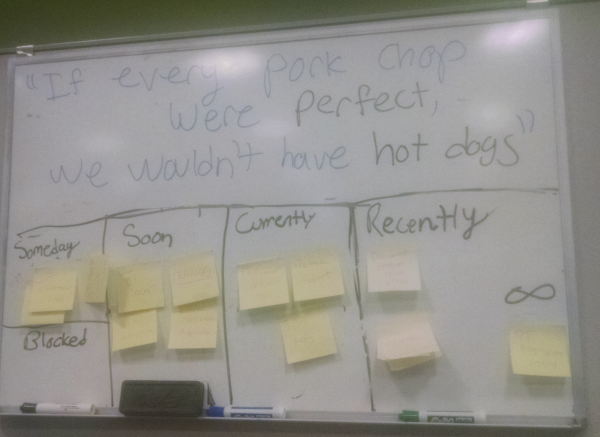 "If every pork chop
were perfect,
we wouldn't have hot dogs"
Someday
Soon
Currently
Recently
∞
Blocked